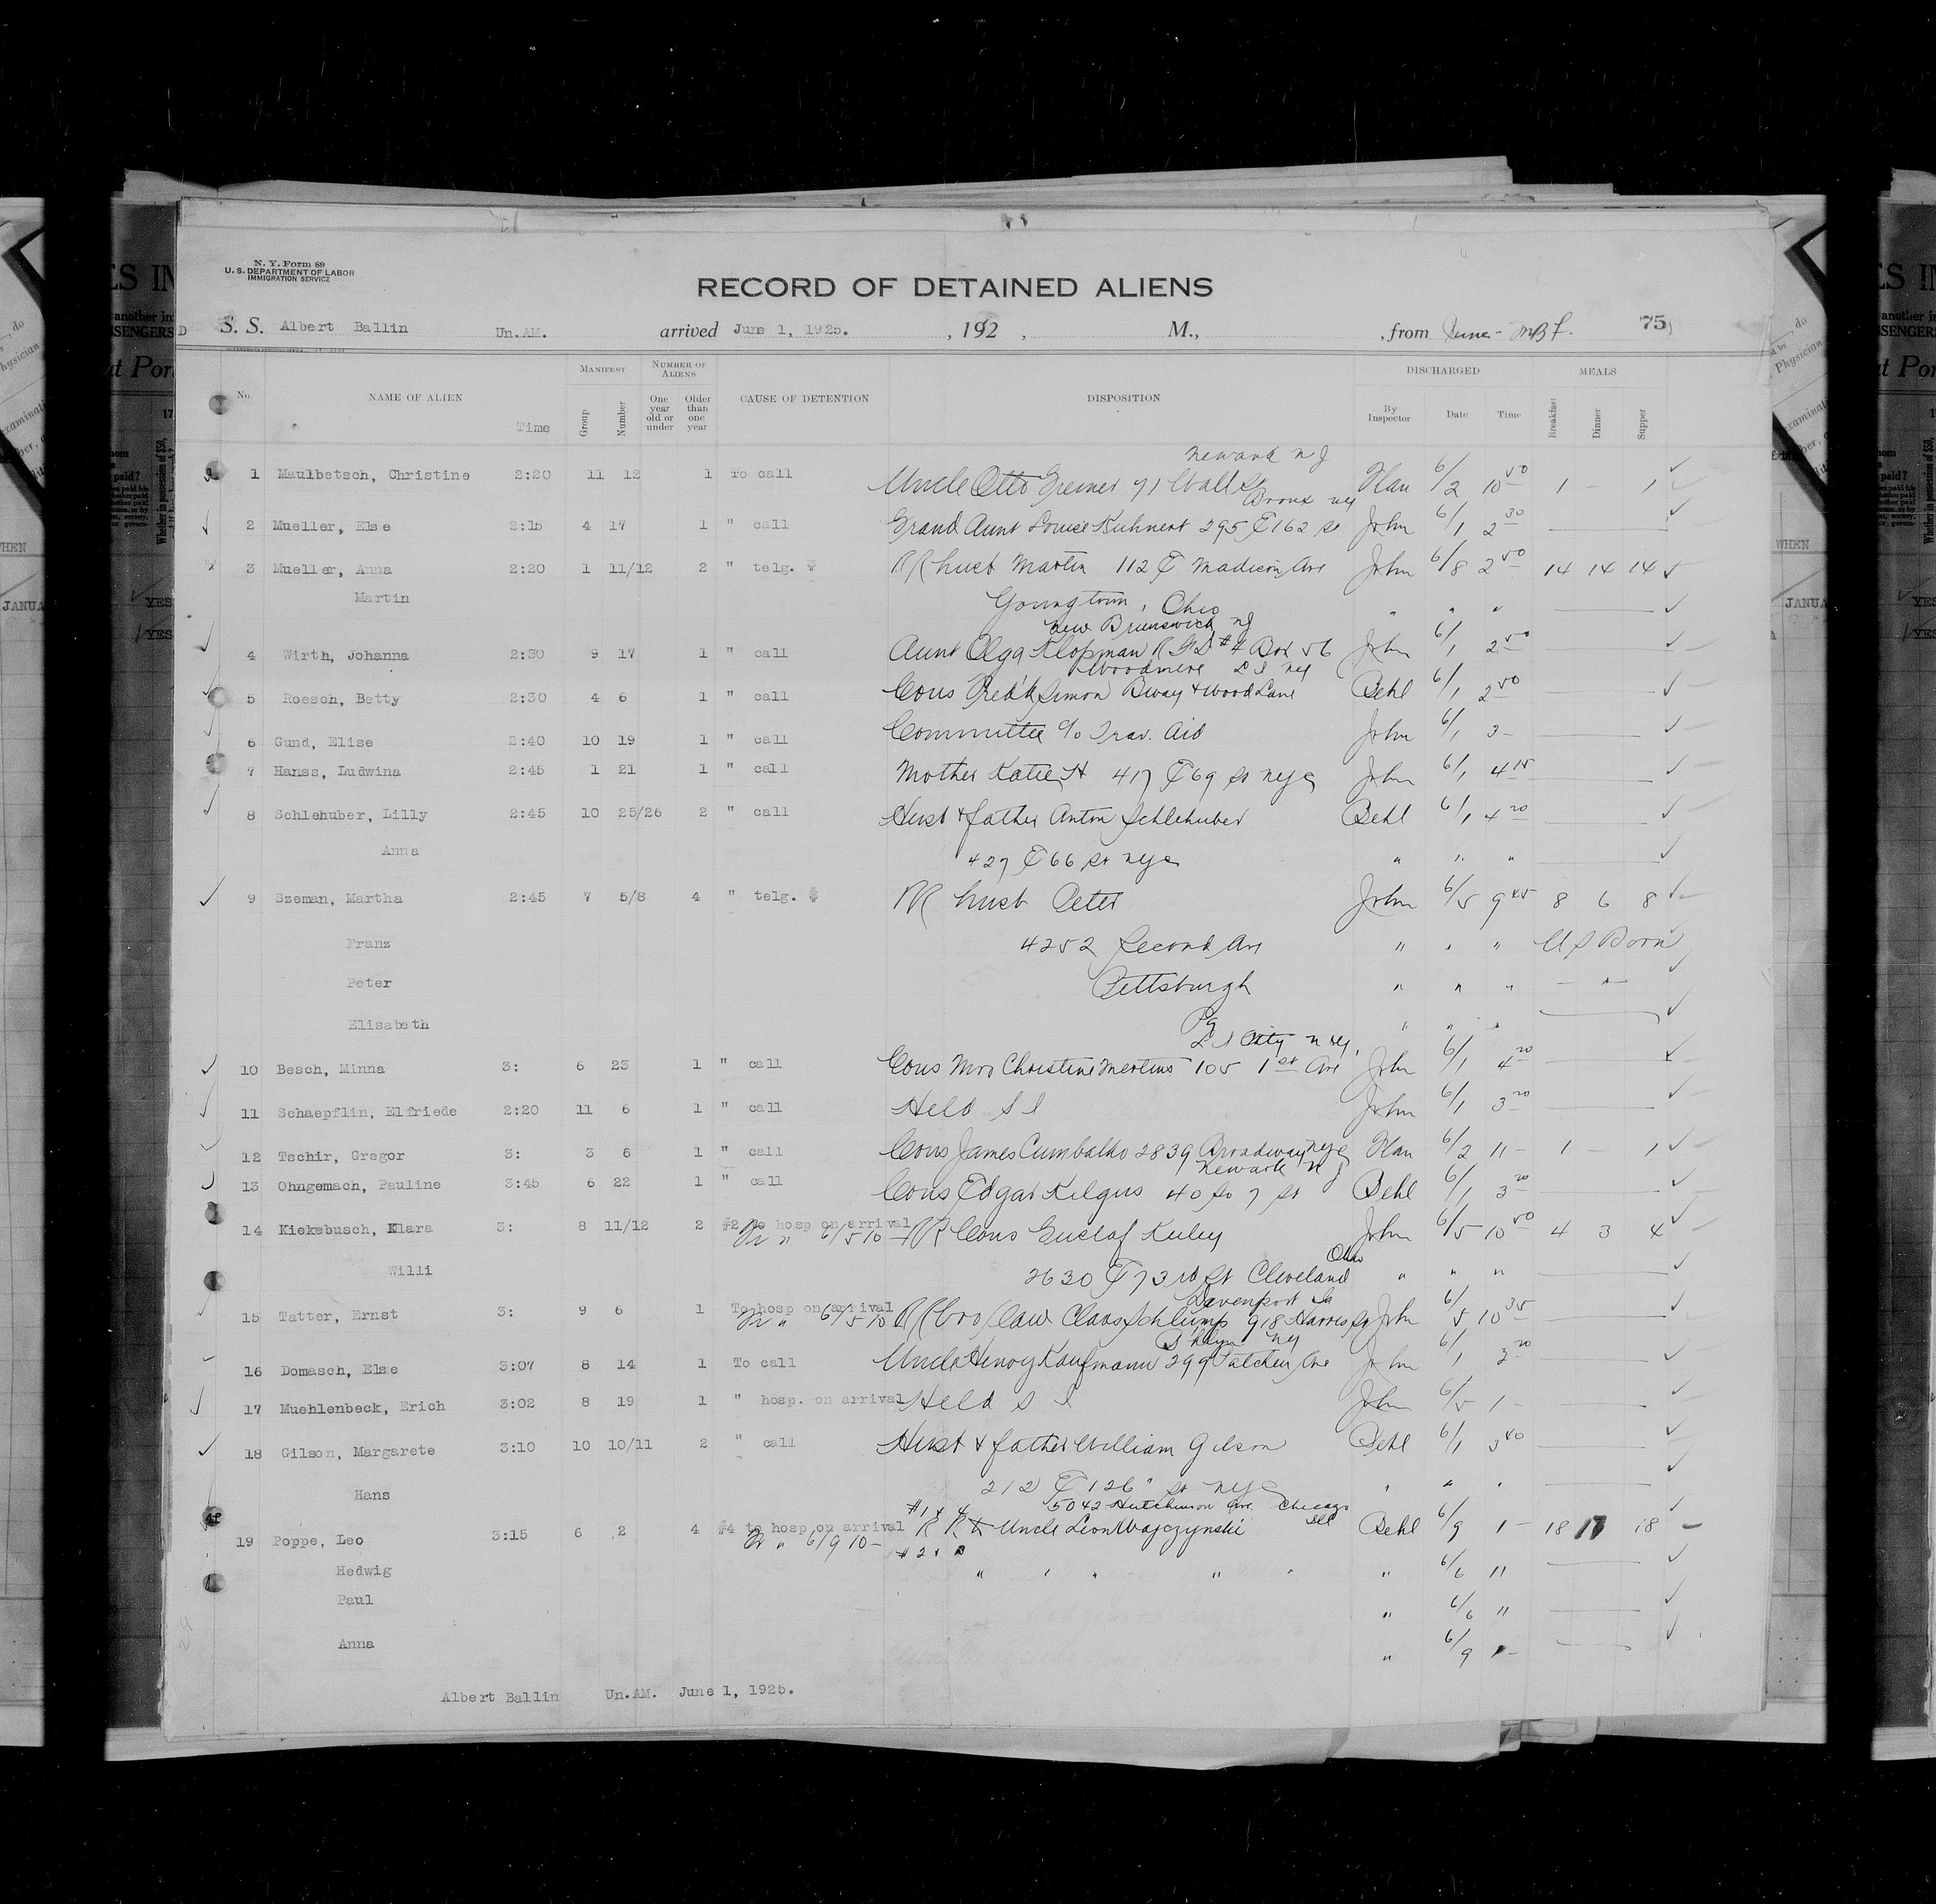 N. Y. Form 89
U. S. DEPARTMENT OF LABOR
IMMIGRATION SERVICE
RECORD OF DETAINED ALIENS
S. S. Albert Ballin Un.AM. arrived June 1, 1925. , 192 , M., , from June- 75
No. NAME OF ALIEN Time MANIFEST Group Number NUMBER OF ALIENS One year old or under Older than one year CAUSE OF DETENTION DISPOSITION DISCHARGED By Inspector Date Time MEALS Breakfast Dinner Supper
Newark N J
1 Maulbetsch, Christine 2:20 11 12 1 To call Uncle Otto Greiner 71 Wall St 6/2 10 50 1 — 1
Bronx NY
2 Mueller, Else 2:15 4 17 1 " call Grand Aunt Louise Kuhnert 295 E 162 St John 6/1 2 30
3 Mueller, Anna 2:20 1 11/12 2 " telg. $ RR husb Martin 112 E Madison Ave John 6/8 2 50 14 14 14
Martin Youngtown, Ohio " " "
New Brunswick NJ
4 Wirth, Johanna 2:30 9 17 1 " call Aunt Olga Klopman R F D #4 Box 56 John 6/1 2 50
Woodmere L I NY
5 Roesch, Betty 2:30 4 6 1 " call Cous Fred'k Simon Bway & Wood Lane Behl 6/1 2 50
6 Gund, Elise 2:40 10 19 1 " call Committee c/o Trav. Aid John 6/1 3 -
7 Hanss, Ludwina 2:45 1 21 1 " call Mother Katie H 417 E 69 St NYC John 6/1 4 15
8 Schlehuber, Lilly 2:45 10 25/26 2 " call Husb & father Anton Schlehuber Behl 6/1 4 20
Anna 427 E 66 St NYC " " "
9 Szeman, Martha 2:45 7 5/8 4 " telg. $ RR husb Peter John 6/5 9 45 8 6 8
Franz 4252 Second Ave " " " U S Born
Peter Pittsburgh " " " — " —
Elisabeth Pa " " "
L I City N Y
10 Besch, Minna 3: 6 23 1 " call Cous Mrs Christine Mertins 105 1st Ave John 6/1 4 20
11 Schaepflin, Elfriede 2:20 11 6 1 " call Held S I John 6/1 3 20
12 Tschir, Gregor 3: 3 6 1 " call Cous James Cumbalko 2839 Broadway NYC 6/2 11 - 1 — 1
Newark N J
13 Ohngemach, Pauline 3:45 6 22 1 " call Cous Edgar Kilgus 40 So 7 St Behl 6/1 3 20
14 Kiekebusch, Klara 3: 8 11/12 2 #2 to hosp on arrival RR Cous Gustaf John 6/5 10 50 4 3 4
" 6/5 10 -
Ohio
Willi 2630 E 73rd St Cleveland " " "
Davenport Ia
15 Tatter, Ernst 3: 9 6 1 To hosp on arrival RR bro/law Claus Schlump 918 Harrison John 6/5 10 35
" 6/5 10
B'klyn NY
16 Domasch, Else 3:07 8 14 1 To call Uncle Henry Kaufmann 299 Patchen Ave John 6/1 3 20
17 Muehlenbeck, Erich 3:02 8 19 1 " hosp. on arrival Held S I John 6/5 1 -
18 Gilson, Margarete 3:10 10 10/11 2 " call Husb & father William Gilson Behl 6/1 3 40
Hans 212 E 126" St NYC " " "
#1 & 4 5042 Hutchinson Ave. Chicago Ill
19 Poppe, Leo 3:15 6 2 4 #4 to hosp on arrival R R to Uncle Leon Wajczynski Behl 6/9 1 - 18 17 18
" 6/9 10 - #2 & 3
Hedwig " " " " " " 6/6 11
Paul " 6/6 11
Anna " 6/9 1 -
Albert Ballin Un.AM. June 1, 1925.